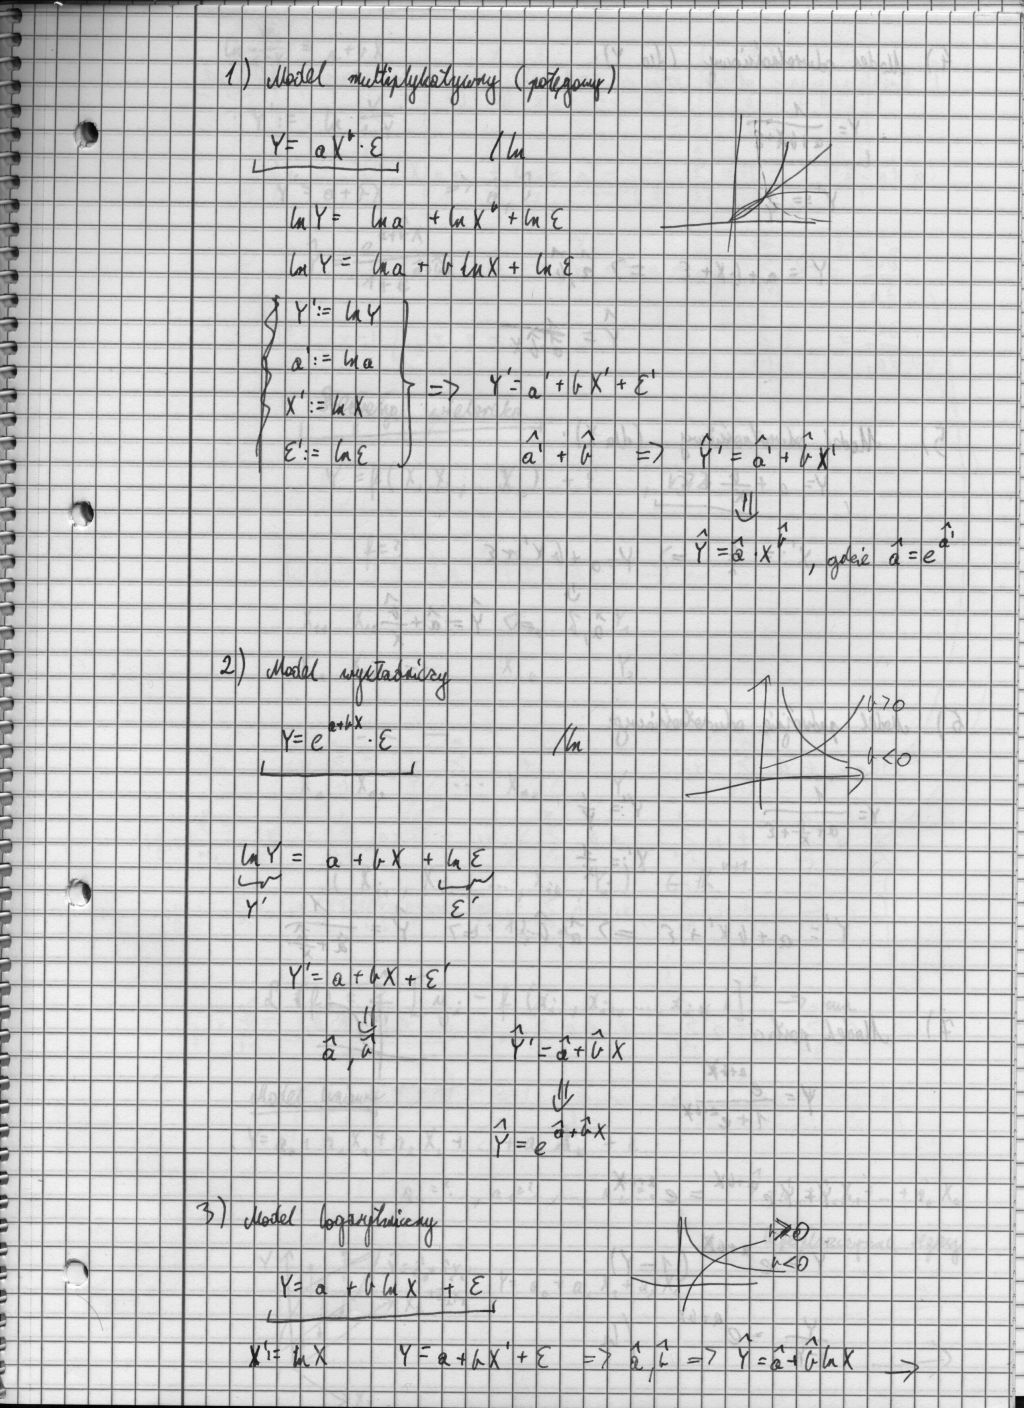 1) Model multiplykatywny (potęgowy)
Y = aX^b · ε /ln
ln Y = ln a + ln X^b + ln ε
ln Y = ln a + b ln X + ln ε
Y' := ln Y
a' := ln a
X' := ln X
ε' := ln ε
=> Y' = a' + bX' + ε'
â' + b̂ => Ŷ' = â' + b̂X'
⇓
Ŷ = â · X^b̂, gdzie â = e^â'
2) Model wykładniczy
Y = e^{a+bX} · ε /ln
b>0
b<0
ln Y = a + bX + ln ε
Y' ε'
Y' = a + bX + ε'
⇓
â, b̂ Ŷ' = â + b̂X
⇓
Ŷ = e^{â+b̂X}
3) Model logarytmiczny
b>0
b<0
Y = a + b ln X + ε
X' = ln X Y = a + bX' + ε => â, b̂ => Ŷ = â + b̂ ln X →